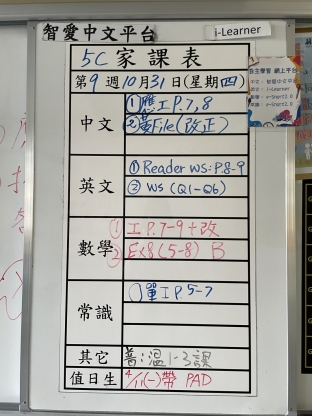 智愛中文平台
i-Learner
5C 家課表
第9週10月31日(星期四)
中文
①應工P.7,8
②黃File(改正)
英文
①Reader WS: P.8-9
②WS (Q1-Q6)
數學
①工P.7-9+改
②Ex8(5-8) B
常識
①單工P5-7
其它
普:溫1-3課
值日生
4/11(一)帶 PAD
自主學習 網上平台